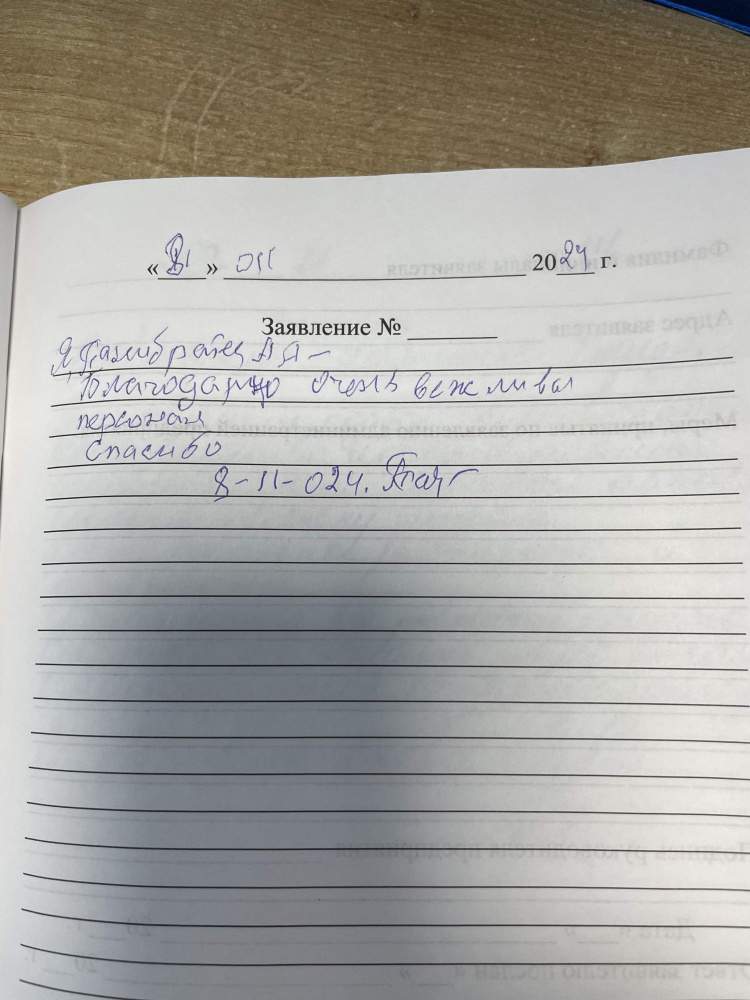 « » 011 2024 г.
Заявление №
Я Панибратец А А –
Благодарю очень вежливы
персонал
Спасибо
8-11-024.